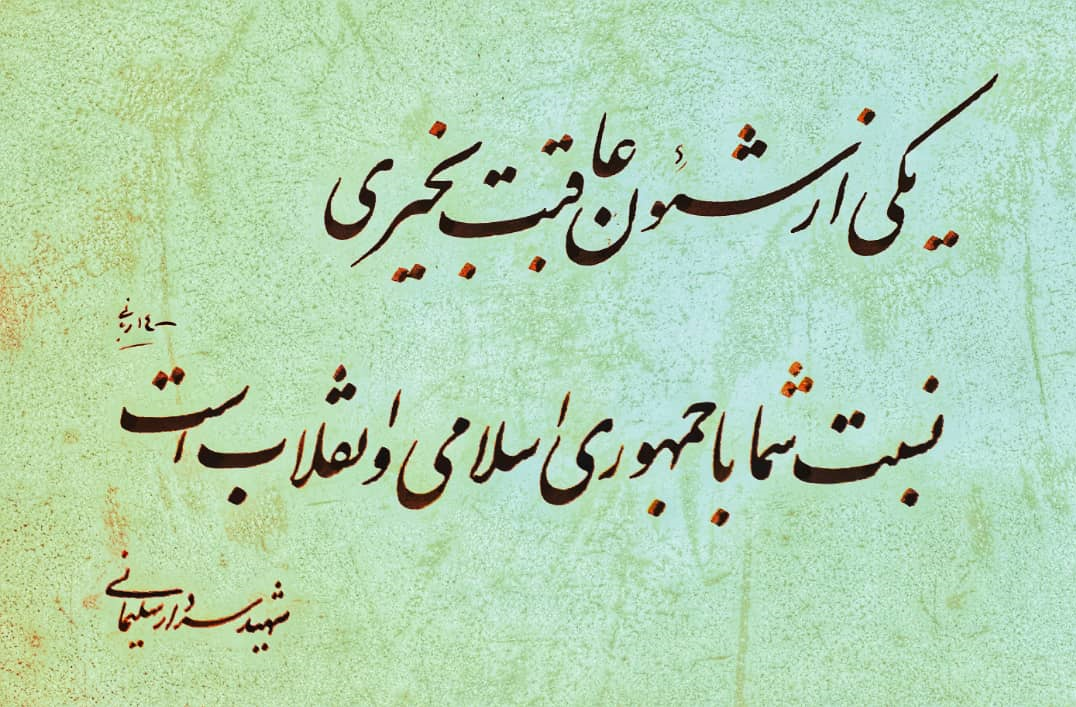 یکی از شئون عاقبت بخیری
نسبت شما با جمهوری اسلامی و انقلاب است
شهید سردار سلیمانی